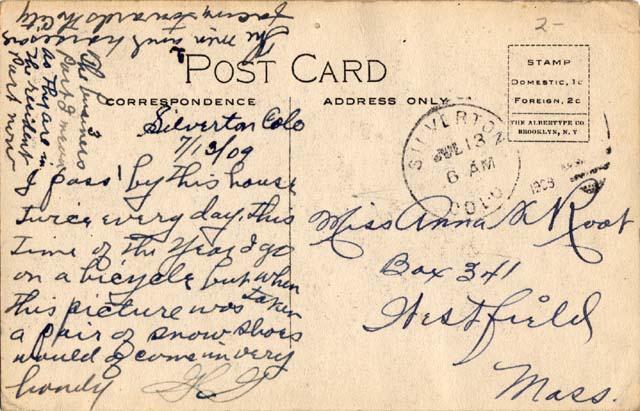 2-
POST CARD
CORRESPONDENCE
ADDRESS ONLY
STAMP
DOMESTIC, 1c
FOREIGN, 2c
THE ALBERTYPE CO.
BROOKLYN, N.Y
SILVERTON
JUL 13
6 AM
COLO
1909
Silverton Colo
7/13/09
I pass by this house
twice every day, this
time of the year I go
on a bicycle but when
this picture was taken
a pair of snow shoes
would of come in very
handy
The business
part I mean
as they are in
the resident
part now
The men and
facing towards the City
Miss Anna K Root
Box 341
Westfield
Mass.